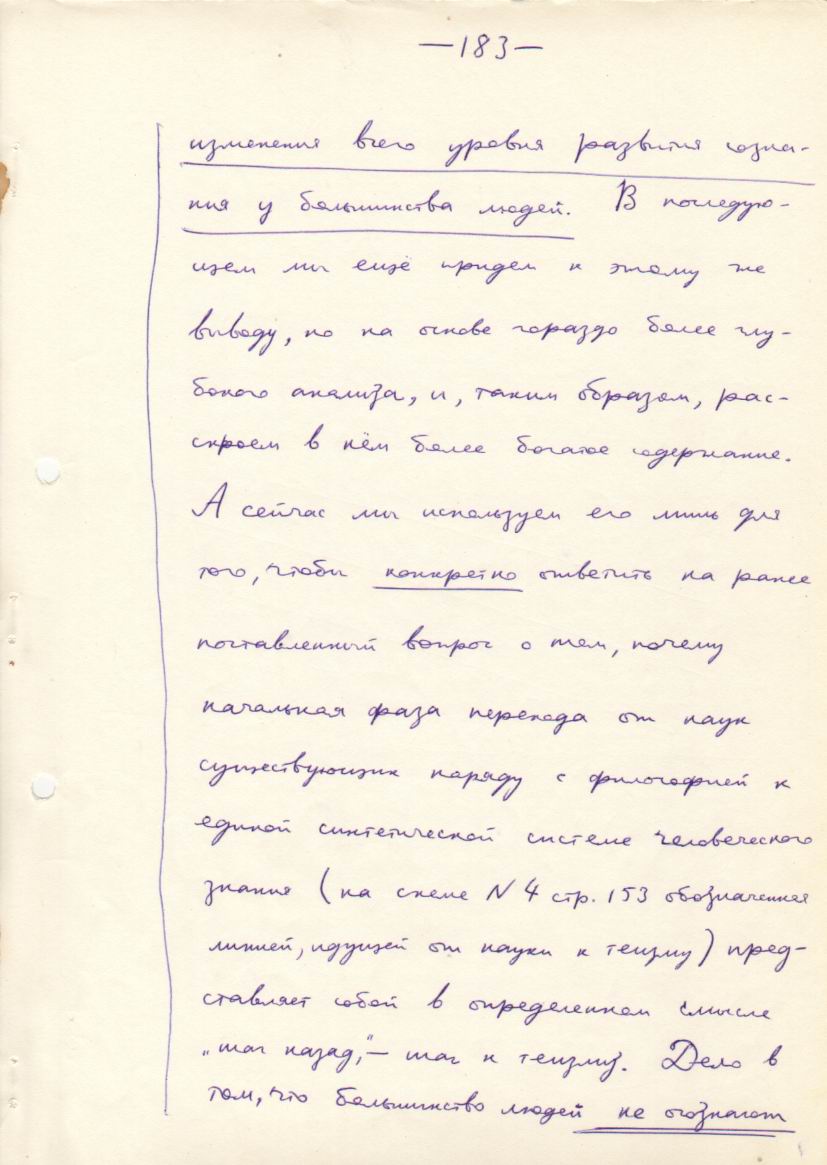 —183—
изменения всего уровня развития созна-
ния у большинства людей. В последую-
щем мы ещё придем к этому же
выводу, но на основе гораздо более глу-
бокого анализа, и, таким образом, рас-
скроем в нём более богатое содержание.
А сейчас мы используем его лишь для
того, чтобы конкретно ответить на ранее
поставленный вопрос о том, почему
начальная фаза перехода от наук
существующих наряду с философией к
единой синтетической системе человеческого
знания (на схеме N4 стр. 153 обозначенная
линией, идущей от науки к теизму) пред-
ставляет собой в определенном смысле
„шаг назад,"— шаг к теизму. Дело в
том, что большинство людей не осознают